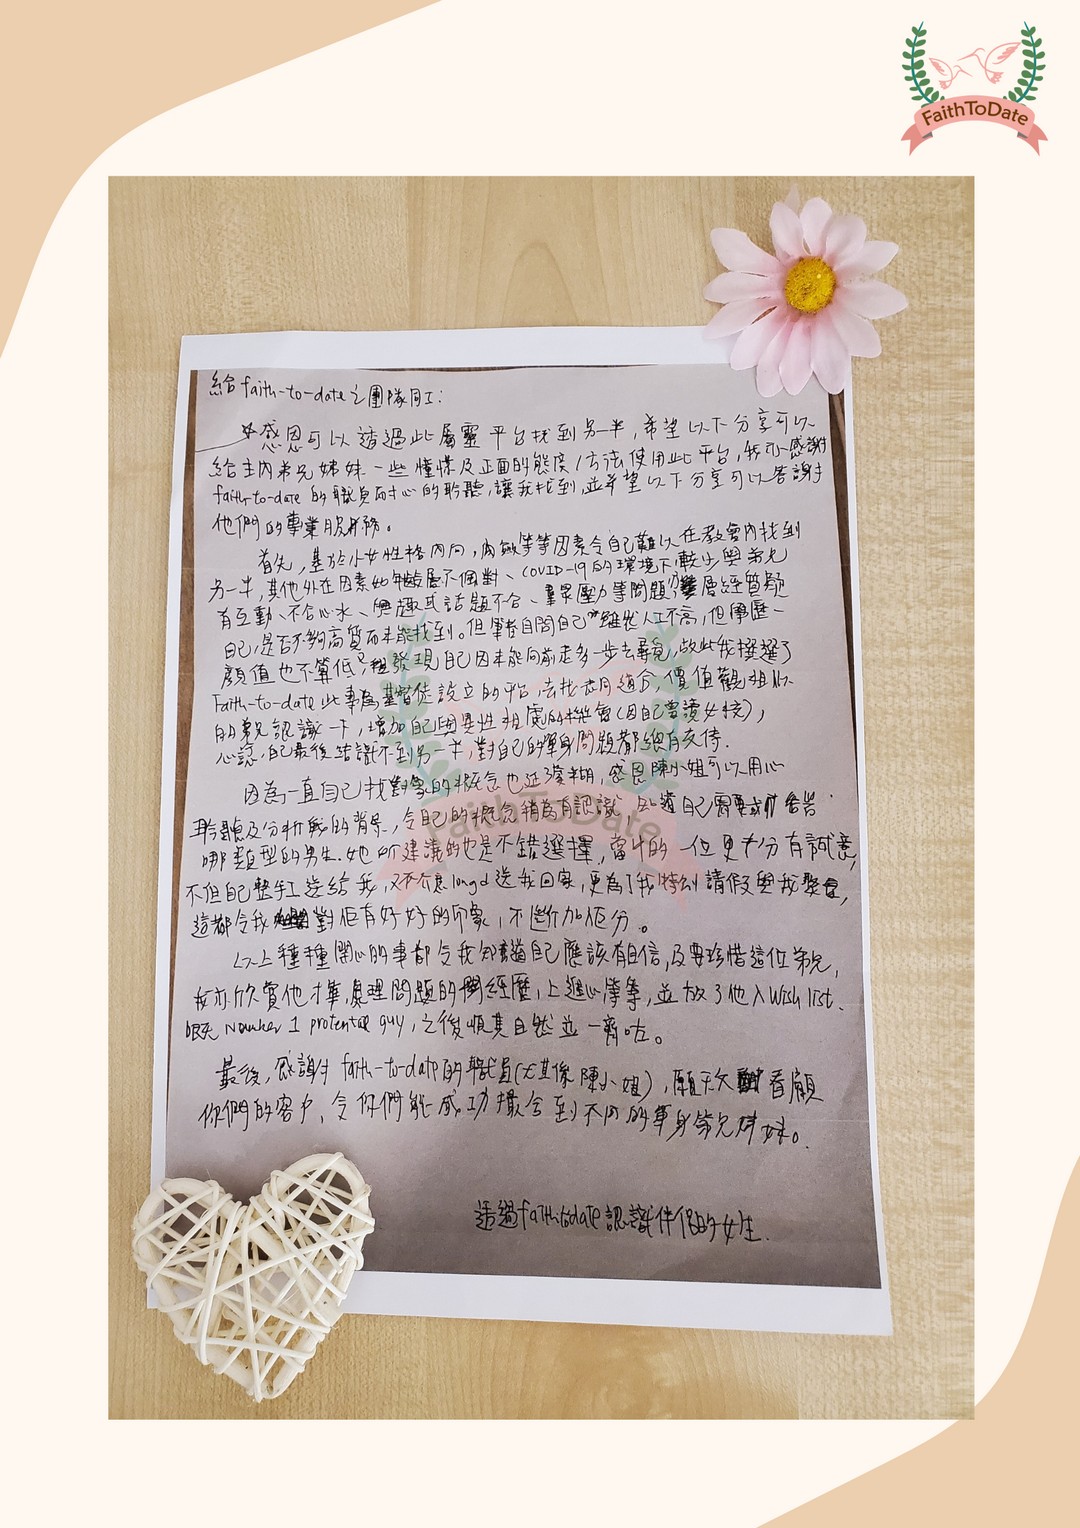 FaithToDate
給faith-to-date之團隊同工：
感恩可以透過此屬靈平台找到另一半，希望以下分享可以
給主內弟兄姊妹一些憧憬及正面的態度/方法使用此平台，我亦感謝
faith-to-date的職員耐心的聆聽，讓我找到，並希望以下分享可以答謝
他們的專業服務。
首先，基於小女性格內向，內斂等等因素令自己難以在教會內找到
另一半，其他外在因素如年齡層不個對、COVID-19的環境下，較少與弟兄
有互動、不合心水、興趣或話題不合、羣眾壓力等問題，層經質疑
自己是否不夠高質而未能找到。但筆者自問自己雖然人工不高，但學歷、
顏值也不算低，發現自己因未能向前走多一步去尋覓，故此我撰選了
Faith-to-date此專為基督徒設立的平台，去找志同道合，價值觀相似
的弟兄認識一下，增加自己與異性相處的機會(因自己曾讀女校)，
心諗，自己最後結識不到另一半，對自己的單身問題都總有交待.
因為一直自己找對象的概念也近模糊，感恩陳小姐可以用心
聆聽及分析我的背景，令自己的概念稍為有認識，知道自己需要或
哪類型的男生.她所建議的也是不錯選擇，當中的一位更十分有誠意，
不但自己整手工送給我，又不介意long d送我回家，更為了我特別請假與我聚會，
這都令我對佢有好好的印象，不斷加佢分。
以上種種開心的事都令我知道自己應該有自信，及要珍惜這位弟兄，
我亦欣賞他才華，處理問題的經歷，上進心等等，並放了他入Wish list.
Number 1 protental guy，之後順其自然並一齊咗。
最後，感謝faith-to-date的職員(尤其係陳小姐)，願天父看顧
你們的客戶，令你們能成功撮合到不同的單身弟兄姊妹。
透過faith-to-date認識伴侶的女生.
FaithToDate